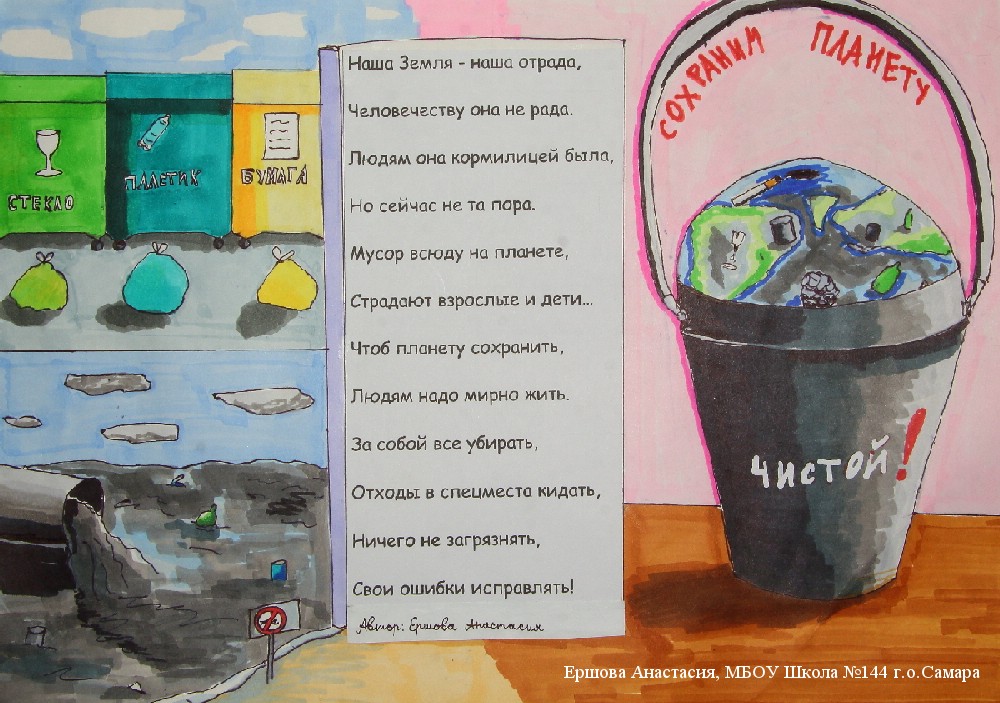 СТЕКЛО
ПЛАСТИК
БУМАГА
Наша Земля - наша отрада,
Человечеству она не рада.
Людям она кормилицей была,
Но сейчас не та пора.
Мусор всюду на планете,
Страдают взрослые и дети...
Чтоб планету сохранить,
Людям надо мирно жить.
За собой все убирать,
Отходы в спецместа кидать,
Ничего не загрязнять,
Свои ошибки исправлять!
Автор: Ершова Анастасия
СОХРАНИМ ПЛАНЕТУ
ЧИСТОЙ!
Ершова Анастасия, МБОУ Школа №144 г.о.Самара